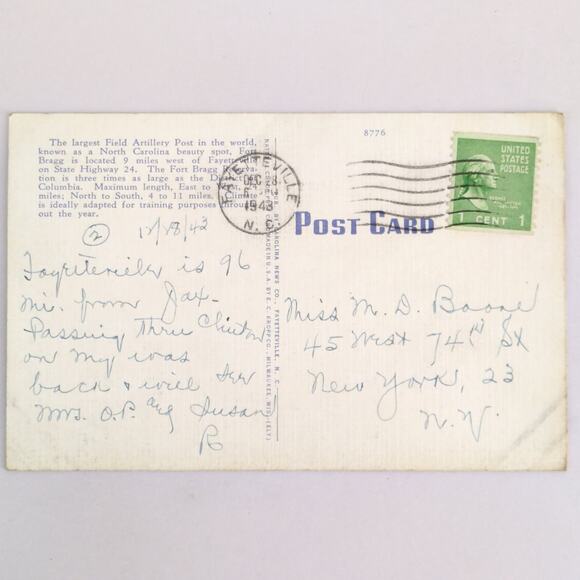 The largest Field Artillery Post in the world,
known as a North Carolina beauty spot, Fort
Bragg is located 9 miles west of Fayetteville
on State Highway 24. The Fort Bragg
tion is three times as large as the
Columbia. Maximum length, East to
miles; North to South, 4 to 11 miles. Climate
is ideally adapted for training purposes through-
out the year.
2 12/28/43
is 96
mi. from Jax-
Passing thru Clinton
on my way
back & will see
Mrs. O.P. and Susan
R
FAYETTEVILLE
DEC 28
1943
N. C.
CAROLINA NEWS CO., FAYETTEVILLE, N. C.
MADE IN U.S.A. BY E. C. KROPP CO., MILWAUKEE, WIS. (ELY)
8776
POST CARD
UNITED
STATES
POSTAGE
1 CENT 1
Miss M. D.
45 West 74th St
New York, 23
N. Y.